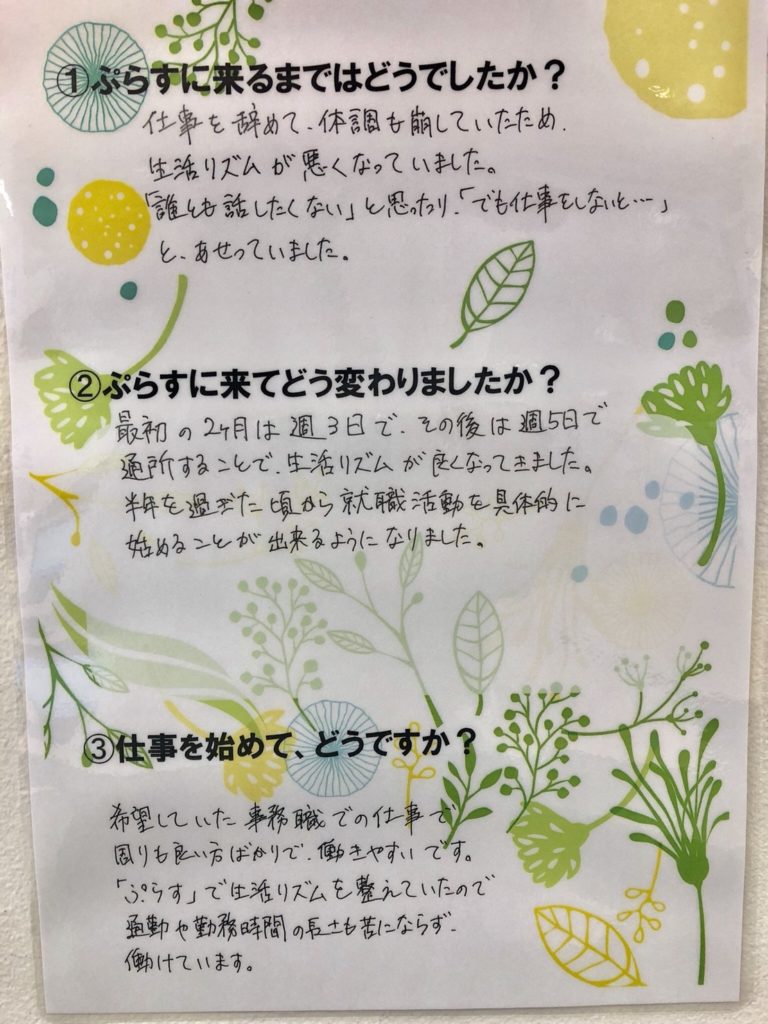 ①ぷらすに来るまではどうでしたか？
仕事を辞めて、体調も崩していたため、
生活リズムが悪くなっていました。
「誰とも話したくない」と思ったり、「でも仕事をしないと…」
と、あせっていました。
②ぷらすに来てどう変わりましたか？
最初の2ヶ月は週3日で、その後は週5日で
通所することで、生活リズムが良くなってきました。
半年を過ぎた頃から就職活動を具体的に
始めることが出来るようになりました。
③仕事を始めて、どうですか？
希望していた事務職での仕事で
周りも良い方ばかりで、働きやすいです。
「ぷらす」で生活リズムを整えていたので
通勤や勤務時間の長さも苦にならず、
働けています。